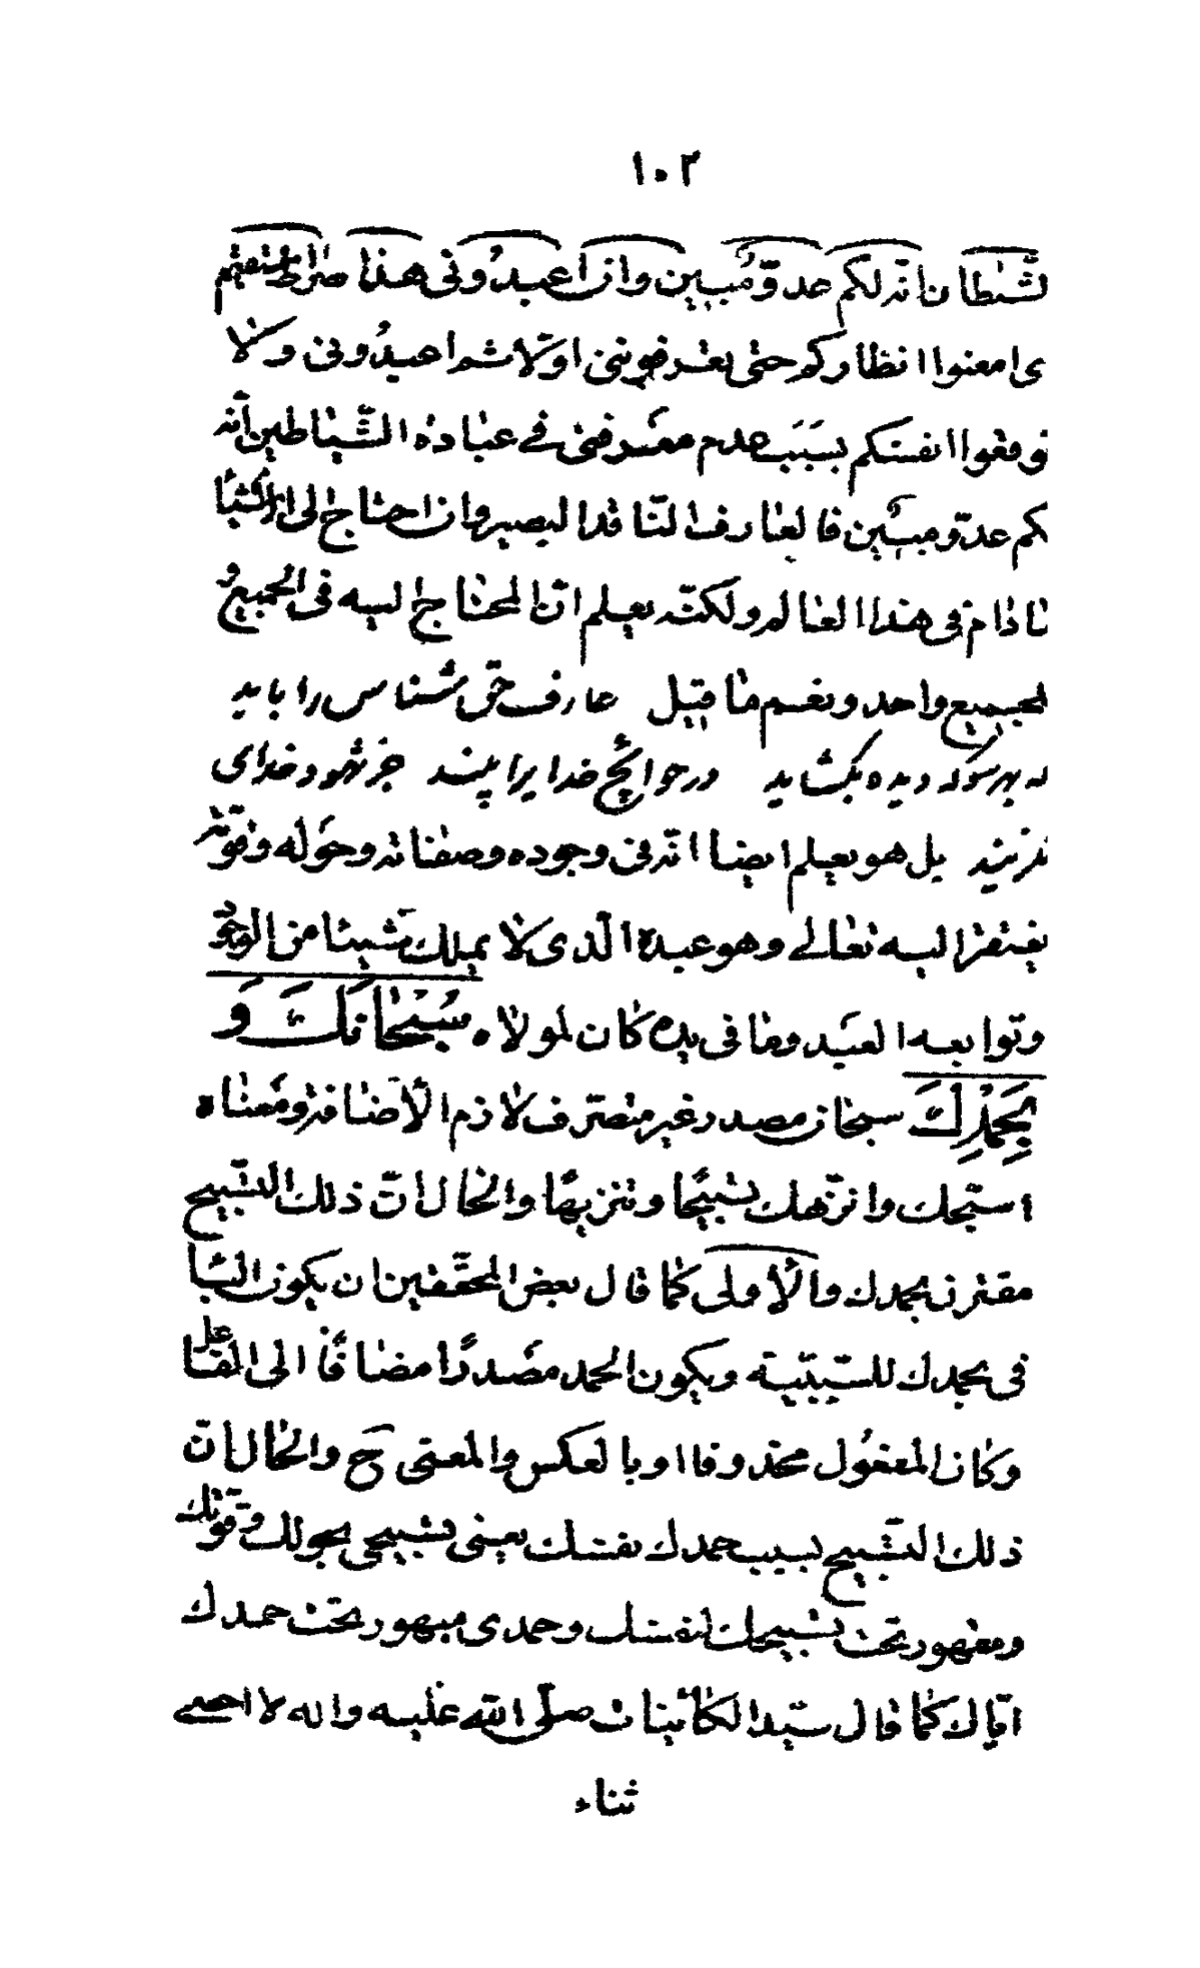 ١٠٢
لشّيطان انّه لكم عدوّ مُبين وان اعبدُونى هذا صراط مستقيم
ى امعنوا انظاركم حتى تعرفوننى اوّلا ثم اعبدُونى ولا
توقعوا انفسكم بسَبَب عدم معرفتى فى عبادة الشّياطين انّه
كم عدوّ مبين فالعارف النّاقد البصير وان احتاج الى الاشياء
مادام فى هذا العالم ولكنّه يعلم انّ المحتاج اليه فى الجميع و
الجميع واحد ونعم ما قيل عارف حق شناس را بايد
كه بهر سو كه ديده بگشايد در حوائج خدا يرا بيند جز شهود خداى
نگزيند بل هو يعلم ايضا انّه فى وجوده وصفاته وحَوله وقوّته
يفتقر اليه تعالى وهو عبده الّذى لا يملك شيئا من الوجود
وتوابعه العبد وما فى يده كان لمولاه سُبْحانَكَ وَ
بِحَمْدِكَ سبحان مصدر غير متصرّف لازم الأضافة ومعناه
اسبّحك وانزّهك تسبيحًا وتنزيهًا والحال انّ ذلك التّسبيح
مقترن بحمدك والأولى كما قال بعض المحقّقين ان يكون الباء
فى بحمدك للسّببيّة ويكون الحمد مصدرًا مضافًا الى الفاعل
وكان المفعول محذوفا او بالعكس والمعنى ح والحال انّ
ذلك التّسبيح بسبب حمدك نفسك يعنى تسبيحى بحولك وقوّتك
ومقهور تحت تسبيحك لنفسك وحمدى مبهور تحت حمدك
ايّاك كما قال سيّد الكائنات صلّى الله عليه واله لا احصى
ثناء